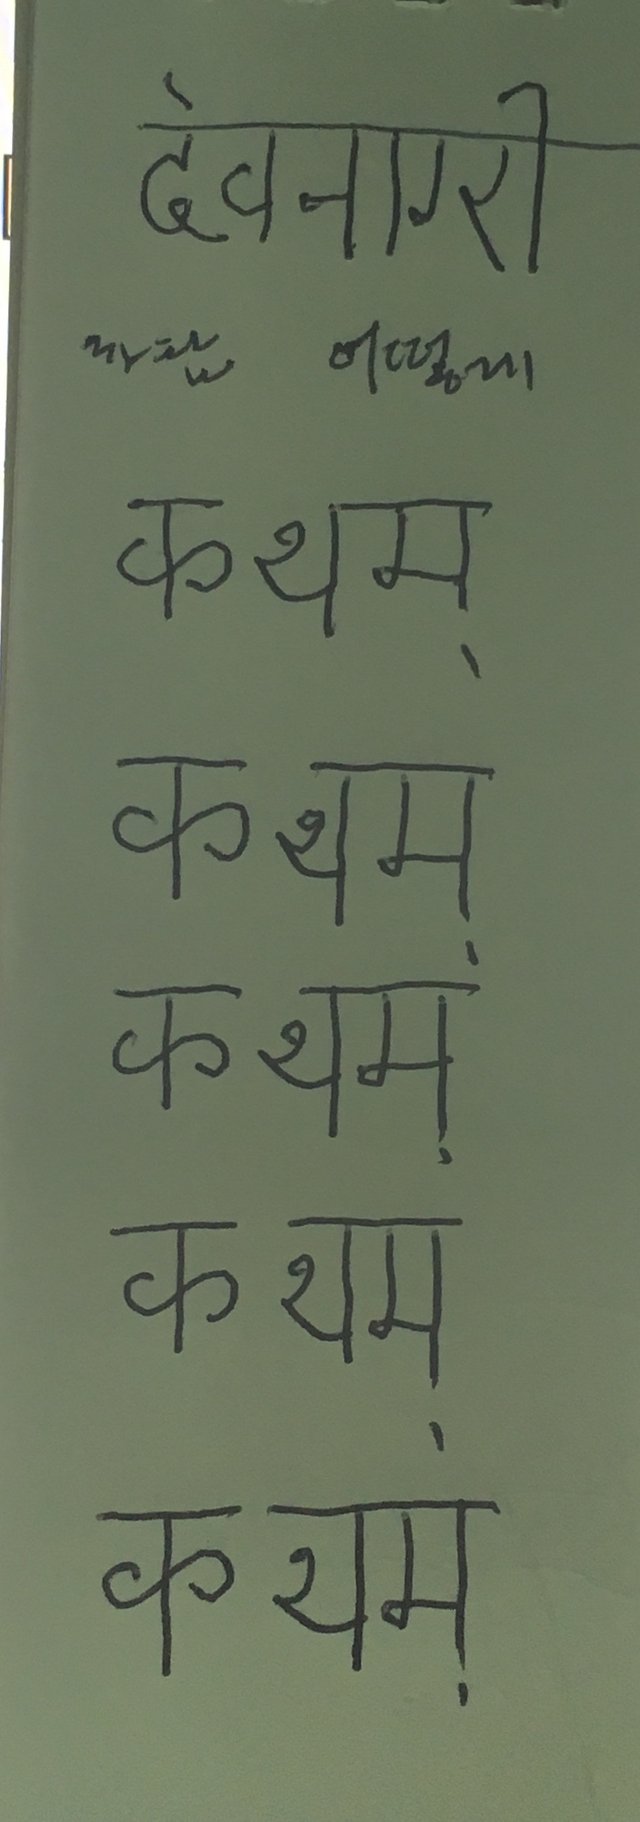 देवनागरी
कथम्
कथम्
कथम्
कथम्
कथम्